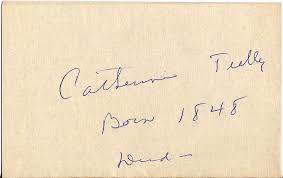 Catherine Tully
Born 1848
Died -